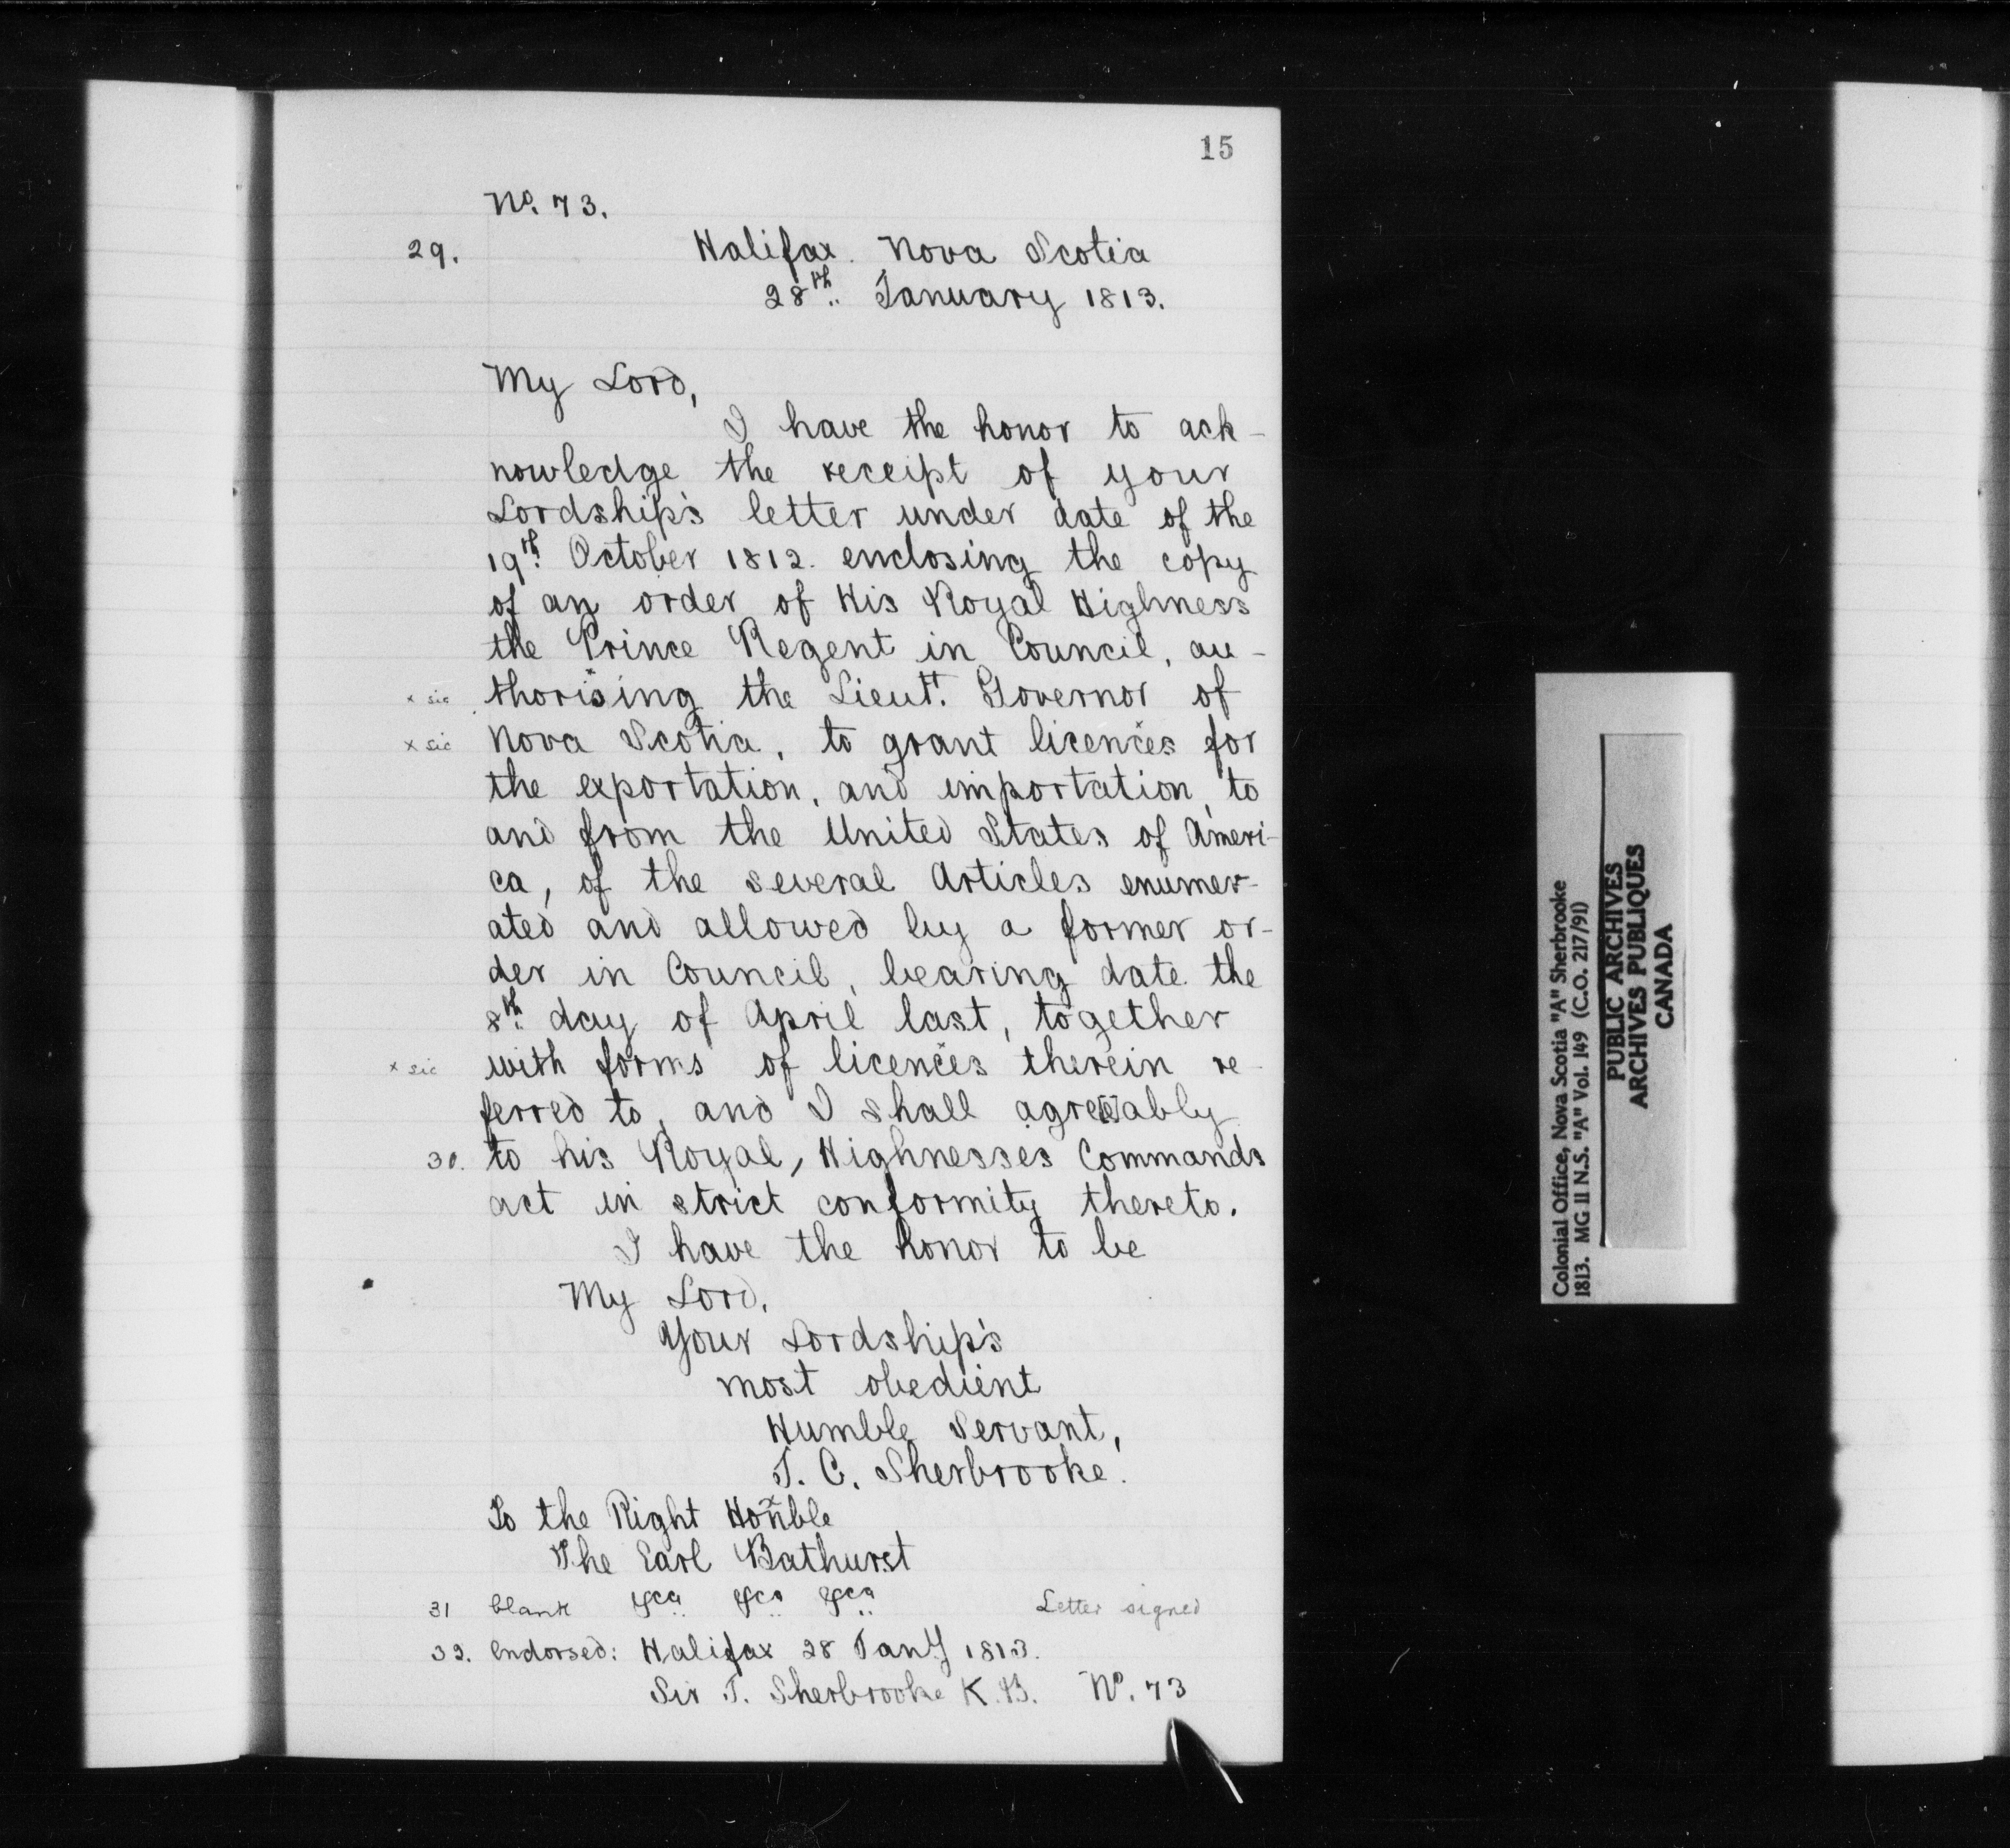 15
No. 73.
29. Halifax. Nova Scotia
28th. January 1813.
My Lord,
I have the honor to ack-
nowledge the receipt of your
Lordship's letter under date of the
19th. October 1812. enclosing the copy
of an order of His Royal Highness
the Prince Regent in Council, au-
x sic thorising the Lieut. Governor of
x sic Nova Scotia, to grant licences for
the exportation, and importation, to
and from the United States of Ameri-
ca, of the several Articles enumer-
ated and allowed by a former or-
der in Council, bearing date the
8th. day of April last, together
x sic with forms of licences therein re-
ferred to, and I shall agre[e]ably
30. to his Royal, Highnesses Commands
act in strict conformity thereto.
I have the honor to be
My Lord,
Your Lordship's
most obedient
Humble Servant,
J. C. Sherbrooke.
To the Right Honble
The Earl Bathurst
31 blank &ca &ca &ca Letter signed
32. Endorsed: Halifax 28 Jany 1813.
Sir J. Sherbrooke K.B. No. 73
Colonial Office, Nova Scotia "A" Sherbrooke
1813. MG 11 N.S. "A" Vol. 149 (C.O. 217/91)
PUBLIC ARCHIVES
ARCHIVES PUBLIQUES
CANADA